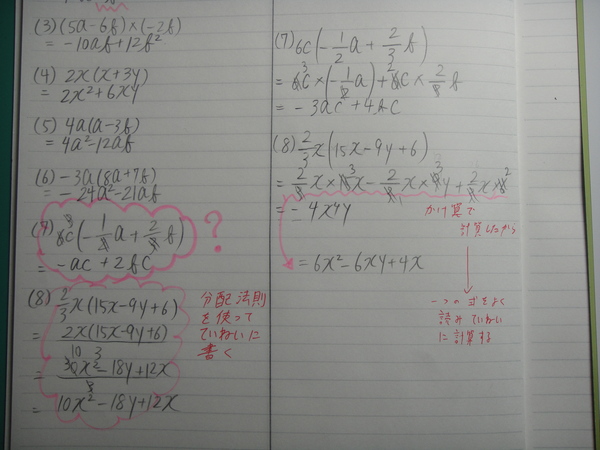 (3) (5a-6b)×(-2b)
= -10ab+12b²
(4) 2x(x+3y)
= 2x²+6xy
(5) 4a(a-3b)
= 4a²-12ab
(6) -3a(8a+7b)
= -24a²-21ab
(7) 6c(-1/2a+2/3b)
= -ac+2bc
?
(8) 2/3x(15x-9y+6)
= 2x(15x-9y+6)
= 30x²-18y+12x/3
= 10x²-18y+12x
分配法則
を使って
ていねいに
書く
(7) 6c(-1/2a+2/3b)
= 6c×(-1/2a)+6c×2/3b
= -3ac+4bc
(8) 2/3x(15x-9y+6)
= 2/3x×15x-2/3x×9y+2/3x×6
= -4x4y
かけ算で
計算したから
= 6x²-6xy+4x
一つの式をよく
読みていねい
に計算する